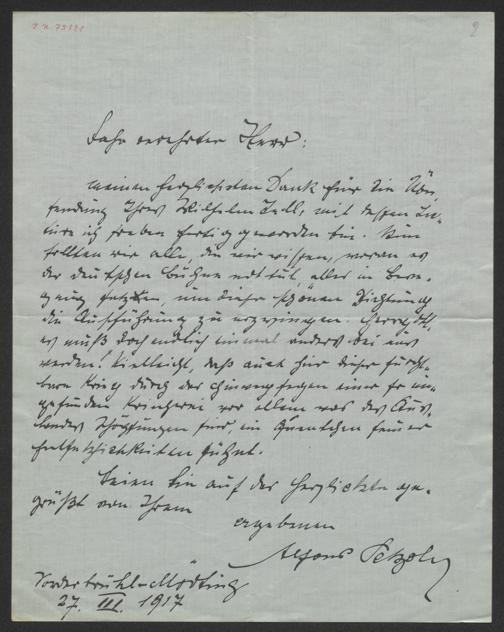 2
Sehr verehrter Herr:
meinen herzlichsten Dank für die Über-
sendung Ihres Wilhelm Tell, mit dessen Lek-
türe ich soeben fertig geworden bin. Nun
sollten wir alle, die wir wissen, woran es
der deutschen Bühne not tut, alles in Bewe-
gung setzen, um dieser schönen Dichtung
die Aufführung zu erzwingen. Herrgott,
es muß doch endlich einmal anders bei uns
werden! Vielleicht, daß auch hier dieser furcht-
bare Krieg durch das hinwegfegen einer so un-
gesunden vor allem was des Aus-
landes Schöpfungen sind, ein Quentchen seiner
führt.
Seien Sie auf das Herzlichste ge-
grüßt von Ihrem
ergebenen
Alfons Petzold
Vorderbrühl-Mödling
27. III. 1917